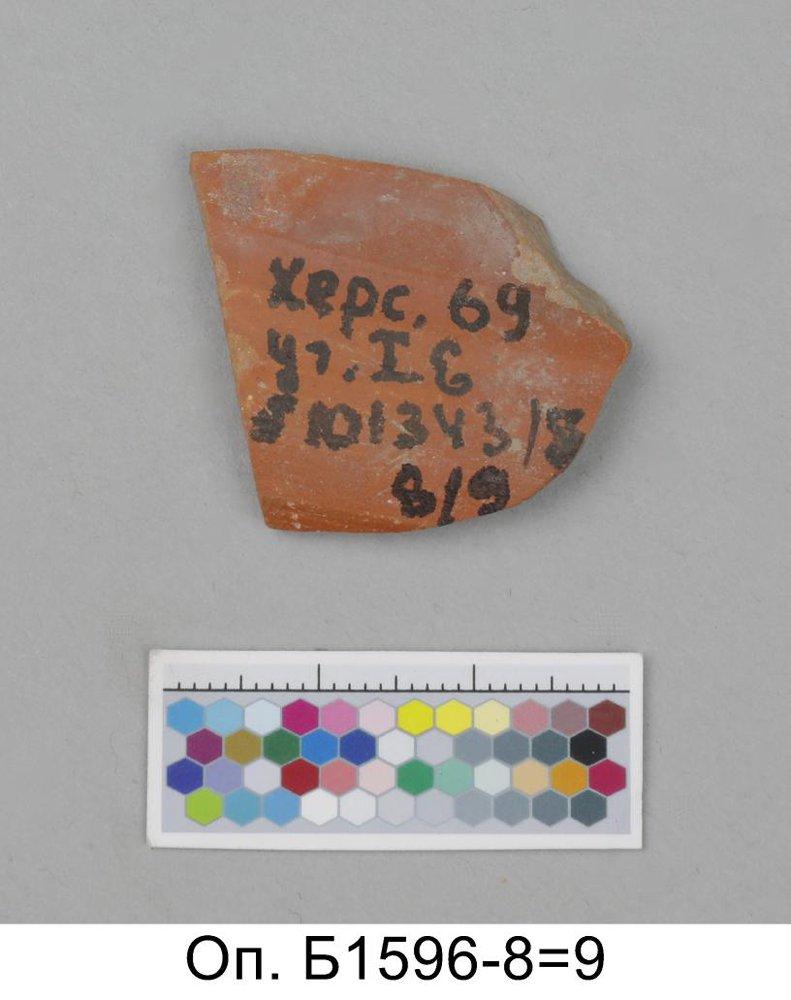 Херс. 69
уг. I Є
101343/8
8/9
Оп. Б1596-8=9